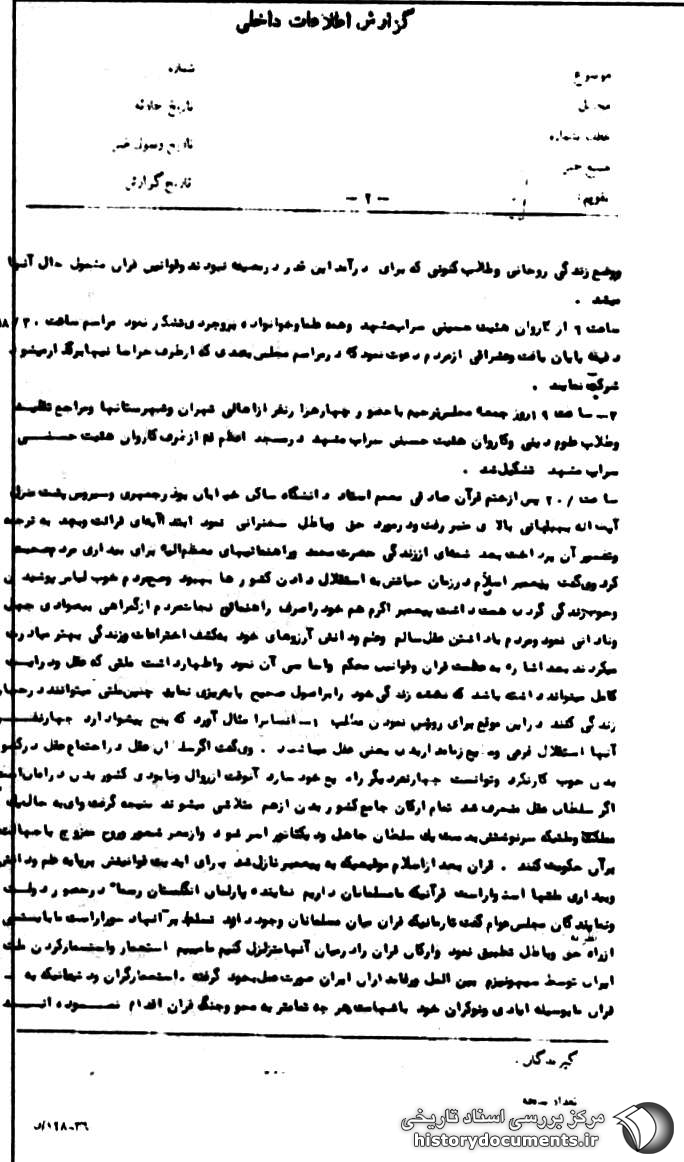 گزارش اطلاعات داخلی
شماره
موضوع
تاریخ حادثه
محل
تاریخ وصول خبر
عطف بشماره
منبع خبر
تاریخ گزارش
تقویم :
- ۲ -
ووضع زندگی روحانی وطالب کنونی که برای درآمد این قدر در مضیقه نبودند وقوانین قرآن مشمول حال آنها
میشد .
ساعت ۶ از کاروان هئیت حسینی سراب مشهد وهمه علما وخانواده بروجردی تشکر نمود مراسم ساعت ۱۸/۳۰
دقیقه پایان یافت از مردم دعوت نمود که در مراسم مجلس بعدی که از طرف برگذار میشود
شرکت نمایند .
۲- ساعت ۱۹ روز جمعه مجلس ترحیم با حضور چهار هزار نفر از اهالی تهران وشهرستانها ومراجع تقلید
وطلاب علوم دینی وکاروان هئیت حسینی سراب مشهد در مسجد اعظم قم از طرف کاروان هئیت حسینی
سراب مشهد تشکیل شد .
ساعت ۲۰/ پس از ختم قرآن صادقی معمم استاد دانشگاه ساکن خیابان بوذرجمهری وسیروس پشت منزل
آیت اله بهبهانی بالای منبر رفت ودرمورد حق وباطل سخنرانی نمود ابتدا آیه‌ای قرائت وبعد به ترجمه
وتفسیر آن پرداخت بعد شمه‌ای از زندگی حضرت محمد وراهنمائیهای معظم‌الیه برای بیداری مردم صحبت
کرد وی گفت پیغمبر اسلام در زمان حیاتش به استقلال دادن کشورها بهبود وضع مردم خوب لباس پوشیدن
وخوب زندگی کردن همت داشت پیغمبر اکرم هم خود را صرف راهنمائی نجات مردم از گمراهی بیسوادی جهل
ونادانی نمود ومردم با داشتن عقل سالم وعلم ودانش آرزوهای خود به کشف اختراعات وزندگی بهتر مبادرت
میکردند بعد اشاره به عظمت قرآن وقوانین محکم واساسی آن نمود واظهار داشت ملتی که عقل ودرایت
کامل میتواند داشته باشد که نقشه زندگی خود را براصول صحیح پایه‌ریزی نماید چنین ملتی میتوانند در جهان
زندگی کنند در این موقع برای روشن نمودن مطلب انسانرا مثال آورد که پنج پیشوا دارد چهار نفر
آنها استقلال فرعی وپنج زمامدار بدن یعنی عقل میباشد . وی گفت اگر سلطان عقل در اجتماع عقل در کشور
بدن خوب کار نکرد ونتوانست چهار نفر دیگر را مطیع خود سازد آنوقت از زوال ونابودی کشور بدن در امان است
اگر سلطان عقل منحرف شد تمام ارکان جامع کشور بدن از هم متلاشی میشوند نتیجه گرفت وای به حال یک
مملکت وملتیکه سرنوشتش بدست یک سلطان جاهل ودیکتاتور اسیر شود واز نظر شعور وروح ممزوج با جهالت
برآن حکومت کنند . قرآن بعد از اسلام موقعیکه به پیغمبر نازل شد برای ابدیت قوانینش برپایه علم ودانش
وبیداری ملتها استوار است قرآنیکه ما مسلمانان داریم نماینده پارلمان انگلستان رسما در حضور دولت
ونمایندگان مجلس عوام گفت تا زمانیکه قرآن میان مسلمانان وجود دارد تسلط بر آنها دشوار است ما بایستی
از راه حق وباطل تطبیق نمود وارکان قرآن را در میان آنها متزلزل کنیم ما میبینیم استعمار واستثمار کردن ملت
نظر به
ایران توسط صهیونیزم بین الملل وزمامداران ایران صورت عمل بخود گرفته . استعمارگران ودشمانیکه به -
قرآن ما بوسیله ایادی ونوکران خود با شهامت هر چه تمامتر به محو وجنگ قرآن اقدام نموده اند
گیرندگان .
تعداد نسخه
۳۶-۱۹۸/د
مرکز بررسی اسناد تاریخی
historydocuments.ir